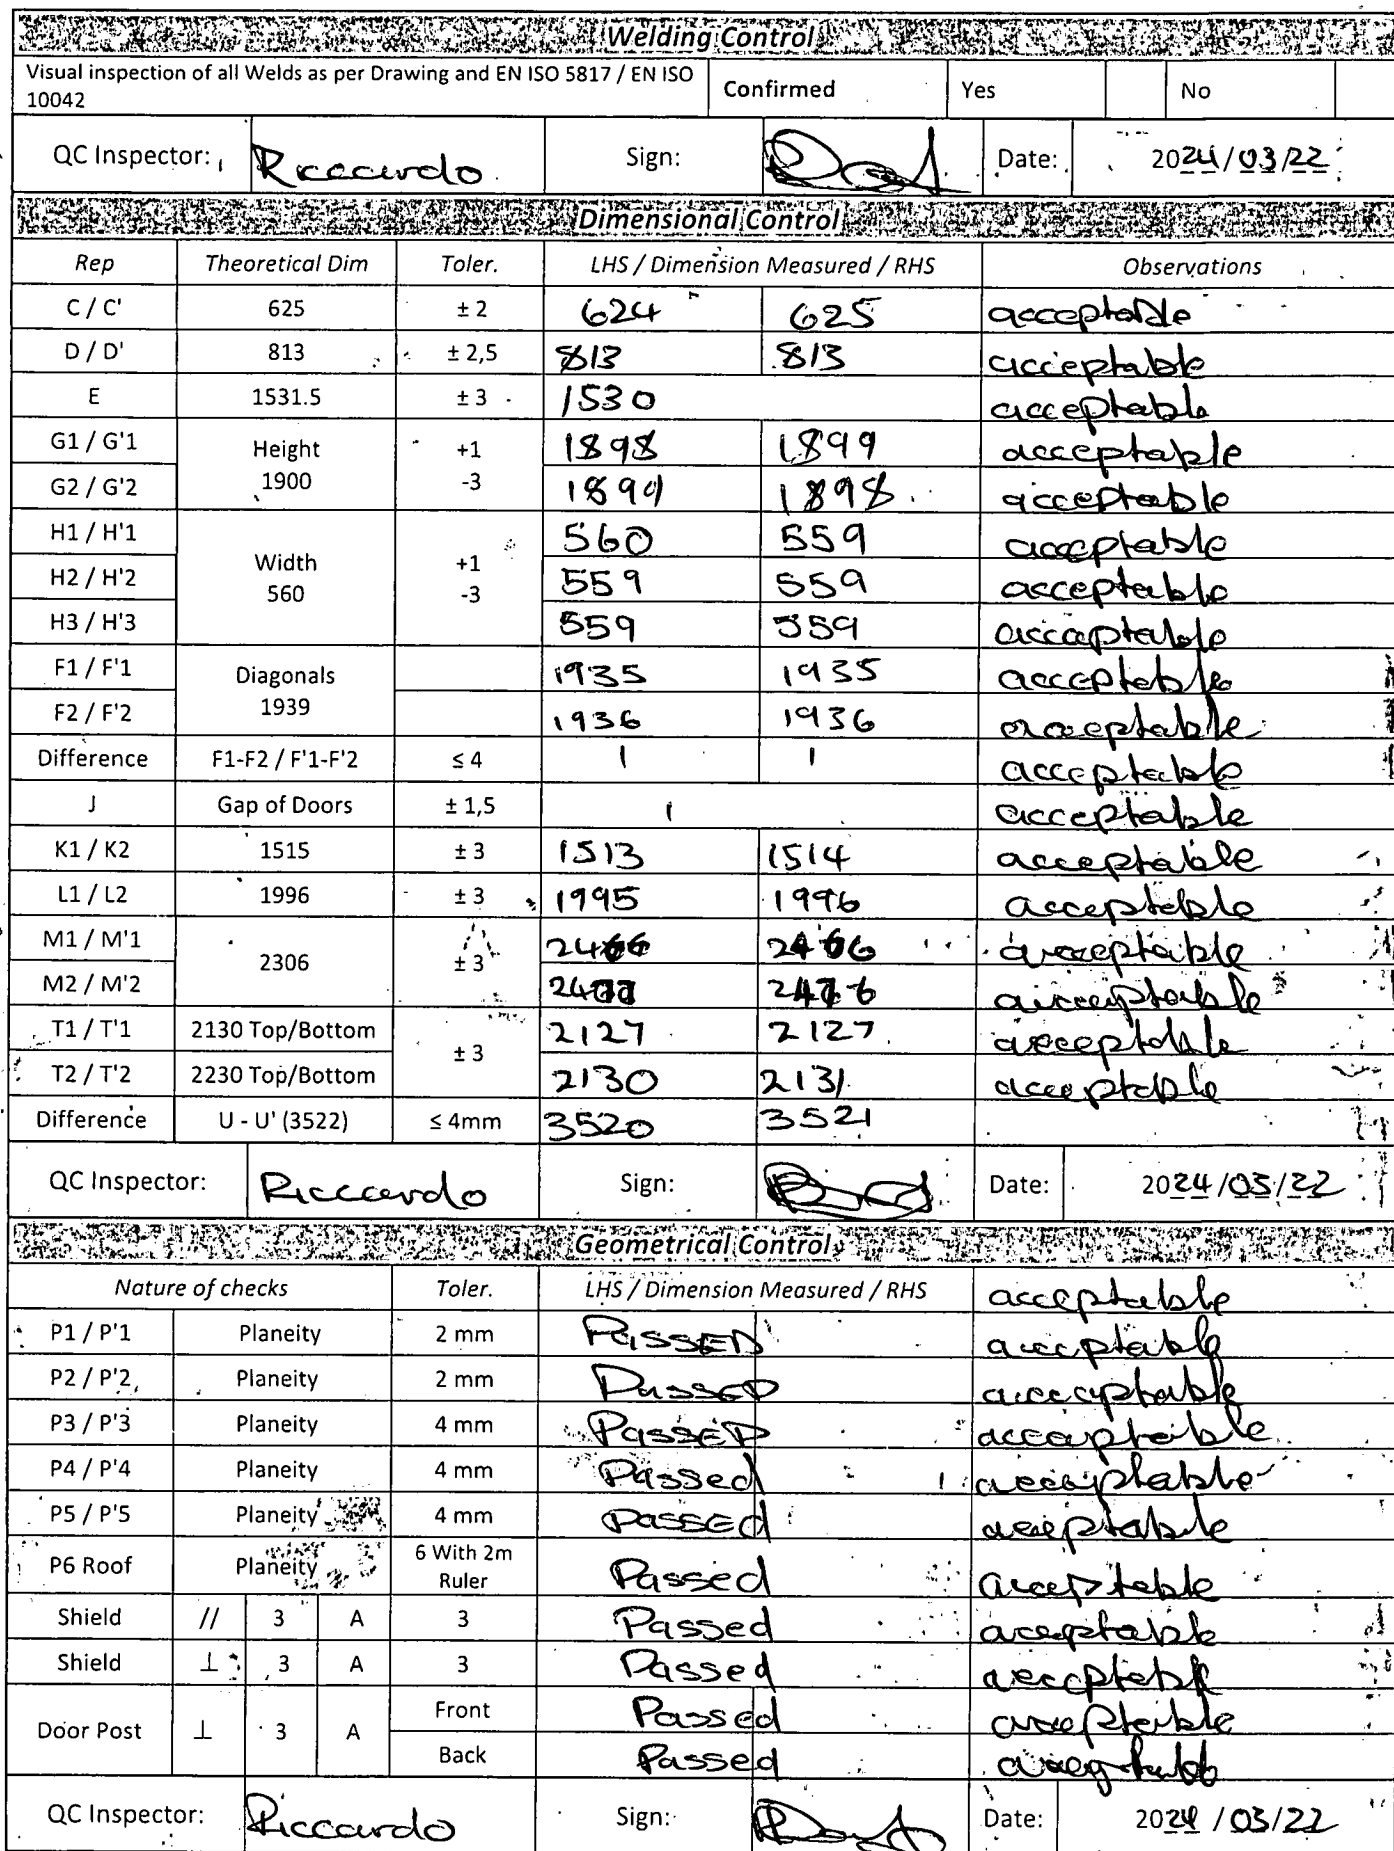 Welding Control
Visual inspection of all Welds as per Drawing and EN ISO 5817 / EN ISO 10042 Confirmed Yes No
QC Inspector: Riccardo Sign: Date: 2024/03/22
Dimensional Control
Rep Theoretical Dim Toler. LHS / Dimension Measured / RHS Observations
C / C' 625 ± 2 624 625 acceptable
D / D' 813 ± 2,5 813 813 acceptable
E 1531.5 ± 3 1530 acceptable
G1 / G'1 Height 1900 +1 -3 1898 1899 acceptable
G2 / G'2 1899 1898 acceptable
H1 / H'1 Width 560 +1 -3 560 559 acceptable
H2 / H'2 559 559 acceptable
H3 / H'3 559 559 acceptable
F1 / F'1 Diagonals 1939 1935 1935 acceptable
F2 / F'2 1936 1936 acceptable
Difference F1-F2 / F'1-F'2 ≤ 4 1 1 acceptable
J Gap of Doors ± 1,5 1 acceptable
K1 / K2 1515 ± 3 1513 1514 acceptable
L1 / L2 1996 ± 3 1995 1996 acceptable
M1 / M'1 2306 ± 3 acceptable
M2 / M'2 acceptable
T1 / T'1 2130 Top/Bottom ± 3 2127 2127 acceptable
T2 / T'2 2230 Top/Bottom 2130 2131 acceptable
Difference U - U' (3522) ≤ 4mm 3520 3521
QC Inspector: Riccardo Sign: Date: 2024/03/22
Geometrical Control
Nature of checks Toler. LHS / Dimension Measured / RHS acceptable
P1 / P'1 Planeity 2 mm PASSED acceptable
P2 / P'2 Planeity 2 mm PassED acceptable
P3 / P'3 Planeity 4 mm PassED acceptable
P4 / P'4 Planeity 4 mm Passed acceptable
P5 / P'5 Planeity 4 mm PassEd acceptable
P6 Roof Planeity 6 With 2m Ruler Passed acceptable
Shield // 3 A 3 Passed acceptable
Shield ⊥ 3 A 3 Passed acceptable
Door Post ⊥ 3 A Front Passed acceptable
Back Passed acceptable
QC Inspector: Riccardo Sign: Date: 2024/03/22